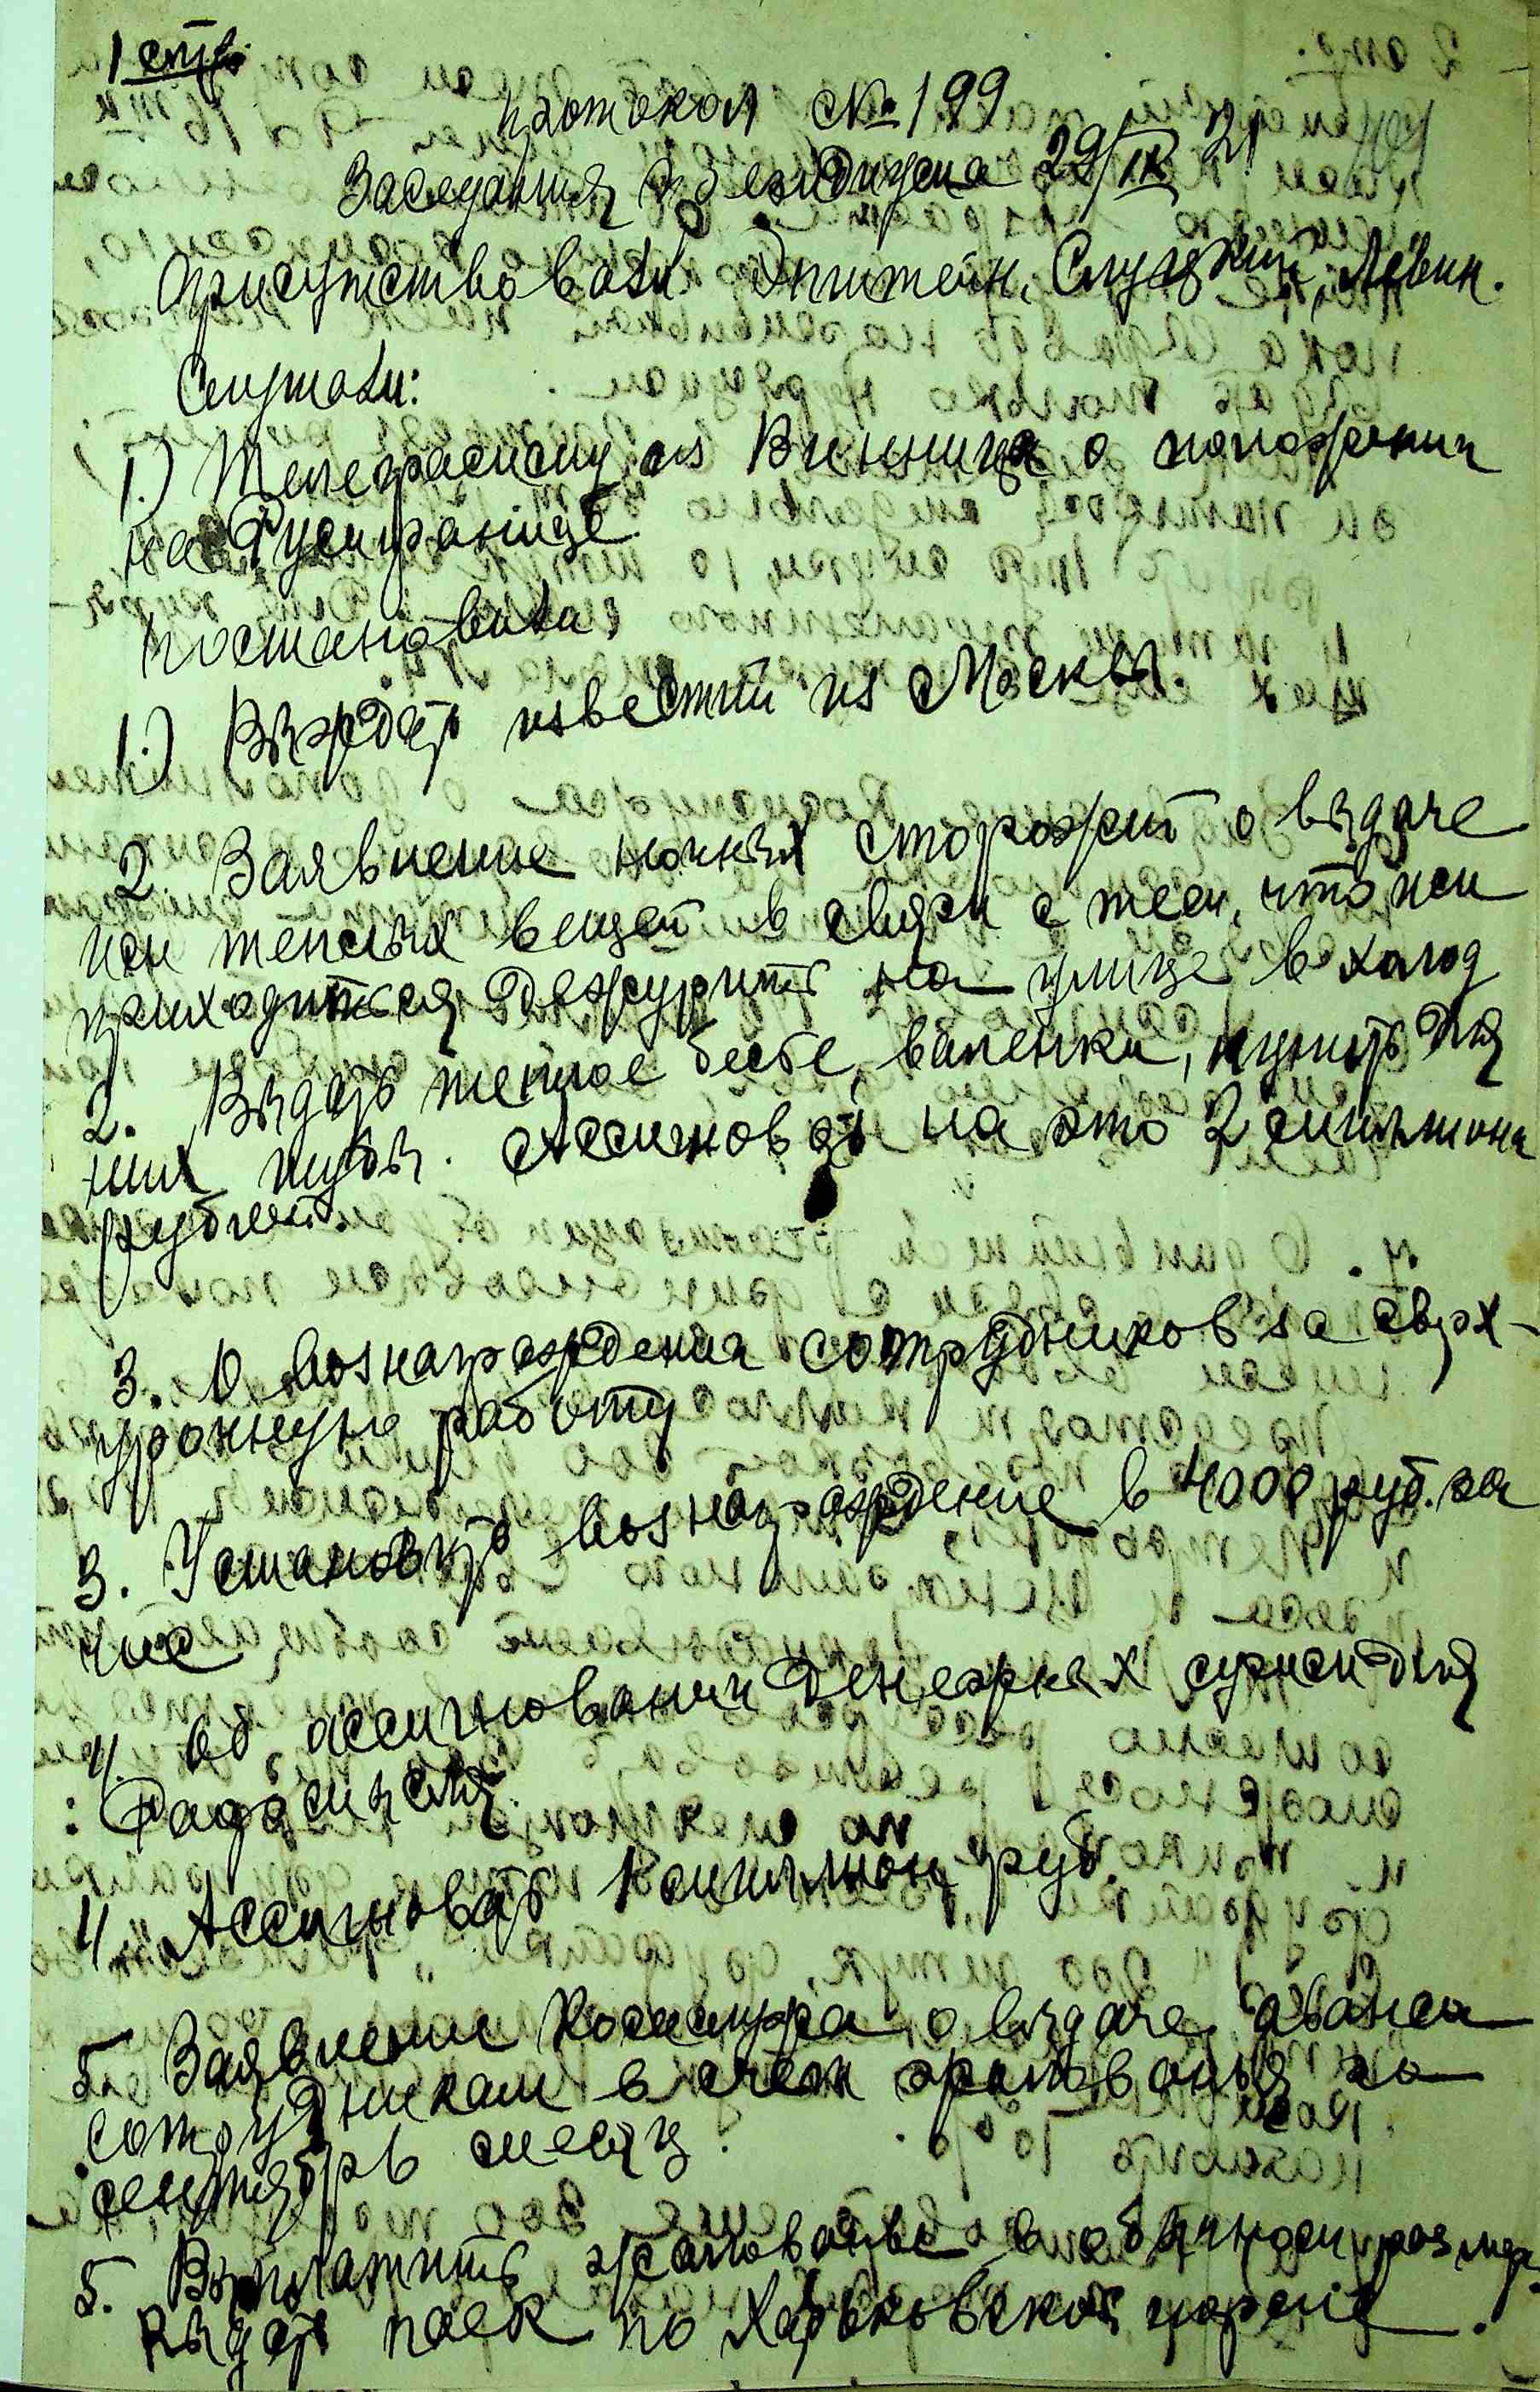 1 стр.
Протокол № 199
Заседания Президиума 29/IX 21
Присутствовали: Эпштейн, Слуцкий, Левин.
Слушали:
1.) Телеграмму из Винницы о положении
на Румгранице.
Постановили:
1.) Выждать известий из Москвы.
2. Заявление ночных сторожей о выдаче
им теплых вещей в связи с тем, что им
приходится дежурить на улице в холод
2. Выдать теплое белье, валенки, купить для
них шубы. Ассигновать на это 2 миллиона
рублей.
3. О вознаграждении сотрудников за сверх-
урочную работу
3. Установить вознаграждение в 4000 руб. за
час
4. Об ассигновании денежных сумм для
4. Ассигновать 1 миллион руб.
5. Заявление о выдаче аванса
сотрудникам в счет жалованья за
сентябрь месяц.
5. Выплатить жалованье в обычном размере
Выдать паек по Харьковской норме.